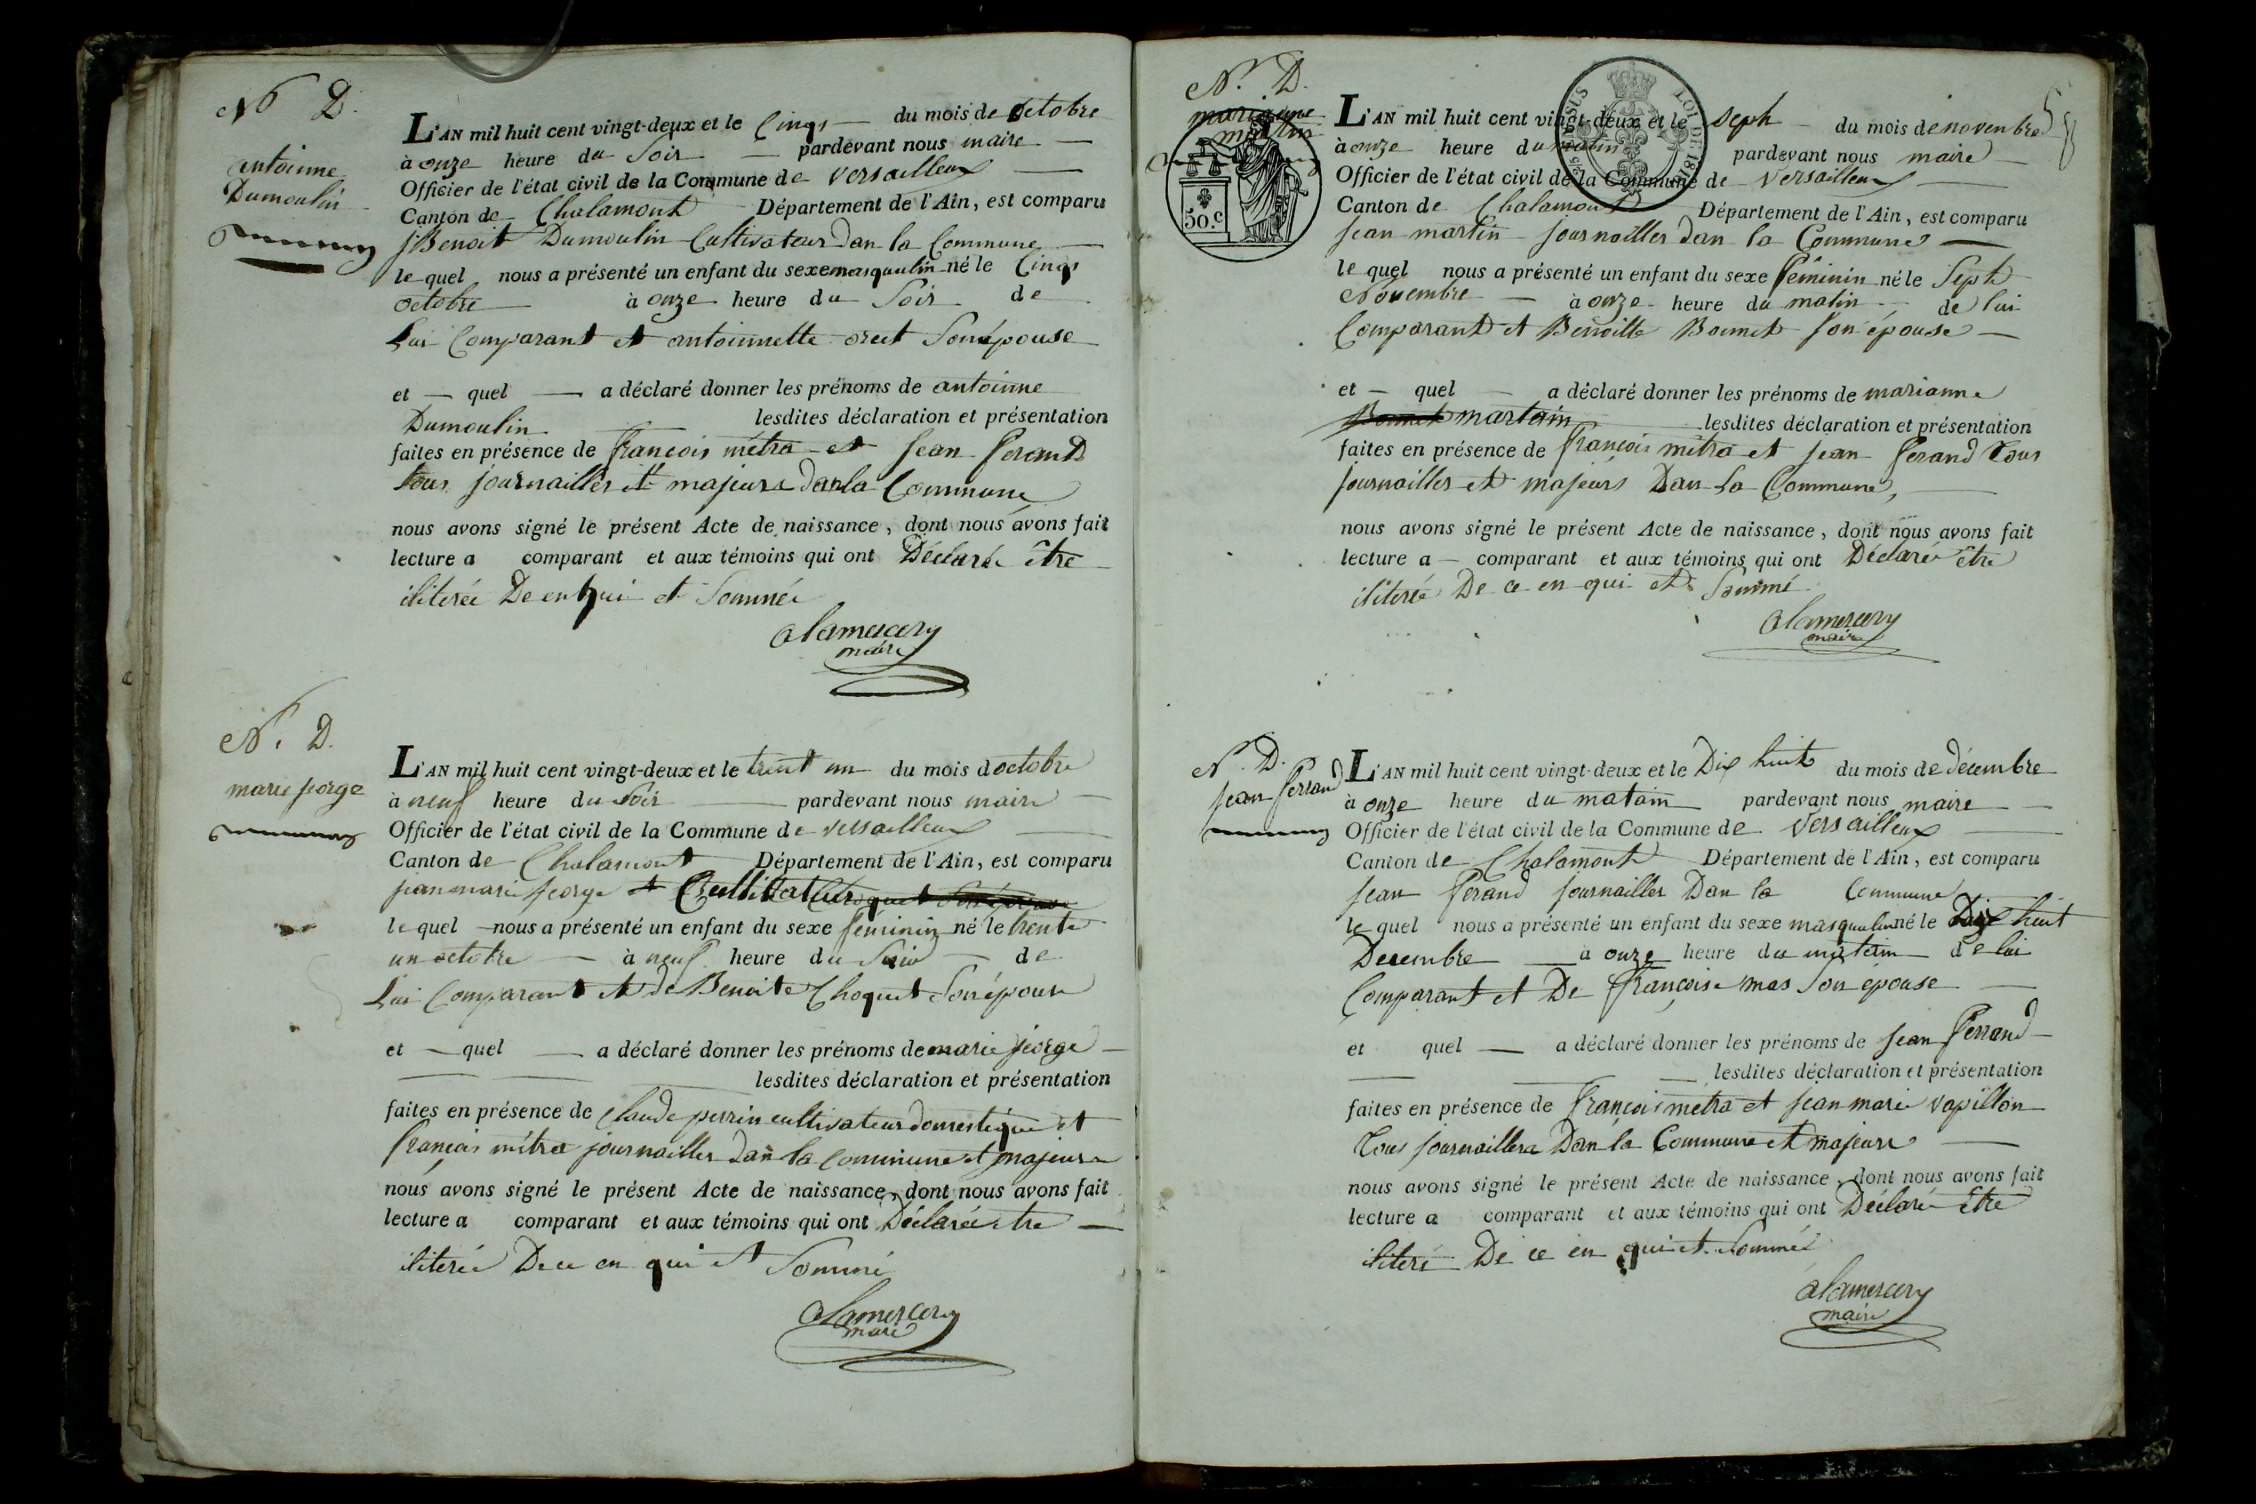 N. D.
antoinne
Dumoulin
L'AN mil huit cent vingt-deux et le Cinqs du mois de octobre
à onze heure du Soir pardevant nous maire
Officier de l'état civil de la Commune de versailleux
Canton de Chalamont Département de l'Ain, est comparu
Benoit Dumoulin Cultivateur dan la Commune
le quel nous a présenté un enfant du sexe masqualin né le Cinqs
octobre à onze heure du Soir de
Lui Comparant et antoinnette Son épouse
et quel a déclaré donner les prénoms de antoinne
Dumoulin lesdites déclaration et présentation
faites en présence de françois métra et jean ferand
tous journailler et majeurs dan la Commune
nous avons signé le présent Acte de naissance, dont nous avons fait
lecture a comparant et aux témoins qui ont Déclaré être
iliterée De en qui et Sommée
alamercery
maire
N. D.
marie jorge
L'AN mil huit cent vingt-deux et le trent un du mois doctobre
à neuf heure du Soir pardevant nous maire
Officier de l'état civil de la Commune de versailleux
Canton de Chalamont Département de l'Ain, est comparu
jean marie jeorge Cultivateur
le quel nous a présenté un enfant du sexe féminin né le trente
un octobre à neuf heure du Soir de
Lui Comparant et de Benoite Choquet Son épouse
et quel a déclaré donner les prénoms de marie jeorge
lesdites déclaration et présentation
faites en présence de Claude perrin cultivateur domestique et
françois métra journailler dan la Commune et majeurs
nous avons signé le présent Acte de naissance, dont nous avons fait
lecture a comparant et aux témoins qui ont Déclarée être
iliterée De ce en qui et Sommé
alamercery
maire
N. D.
marianne
martin
50.c
LOI DE 1816
58
L'AN mil huit cent vingt-deux et le seph du mois de novenbre
à onze heure du matin pardevant nous maire
Officier de l'état civil de la Commune de versailleux
Canton de Chalamont Département de l'Ain, est comparu
jean martin journailler dan la Commune
le quel nous a présenté un enfant du sexe féminin né le Seph
Novembre à onze heure du matin de lui
Comparant et Benoitte Bonnet Son épouse
et quel a déclaré donner les prénoms de marianne
Bonnet martain lesdites déclaration et présentation
faites en présence de françois métra et jean ferand tous
journailler et majeurs Dan La Commune,
nous avons signé le présent Acte de naissance, dont nous avons fait
lecture a comparant et aux témoins qui ont Déclarée être
iliterée De ce en qui et Sommé
alamercery
maire
N. D.
jean ferrand
L'AN mil huit cent vingt-deux et le Dix huit du mois de décembre
à onze heure du matain pardevant nous maire
Officier de l'état civil de la Commune de versailleux
Canton de Chalamont Département de l'Ain, est comparu
jean ferand journailler Dan la Commune
le quel nous a présenté un enfant du sexe masqualin né le Dix huit
Decembre à onze heure du matain de lui
Comparant et De françoise mas Son épouse
et quel a déclaré donner les prénoms de jean ferrand
lesdites déclaration et présentation
faites en présence de françois métra et jean marie vapillon
tous journaillers Dan la Commune et majeurs
nous avons signé le présent Acte de naissance, dont nous avons fait
lecture a comparant et aux témoins qui ont Déclaré être
iliteré De ce en qui et Sommé
alamercery
maire